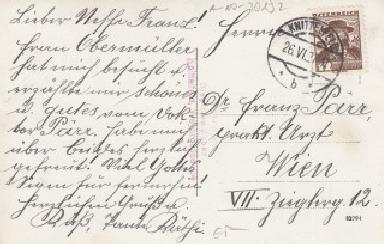 Lieber Neffe Franz!
Frau Obermüller
hat mich besucht u.
erzählte nur schönes
u. gutes vom Dok-
tor Pärr. Habe mich
über beides herzlich
gefreut. Viel Gottes
Segen für fernerhin!
Herzlichen Gruß u.
Kuß, Tante
Herrn
Dr. Franz Pärr,
prakt. Arzt
Wien
VII. Zieglerg. 12.
ÖSTERREICH
KNITTELFELD
26.VI.
b